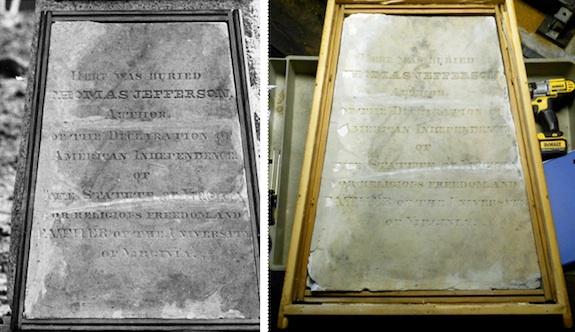 HERE WAS BURIED
THOMAS JEFFERSON,
AUTHOR,
OF THE DECLARATION OF
AMERICAN INDEPENDENCE,
OF
THE STATUTE OF VIRGINIA
FOR RELIGIOUS FREEDOM, AND
FATHER OF THE UNIVERSITY
OF VIRGINIA.
HERE WAS BURIED
THOMAS JEFFERSON,
AUTHOR,
OF THE DECLARATION OF
AMERICAN INDEPENDENCE
OF
THE STATUTE OF VIRGINIA
FOR RELIGIOUS FREEDOM, AND
FATHER OF THE UNIVERSITY
OF VIRGINIA.
DEWALT